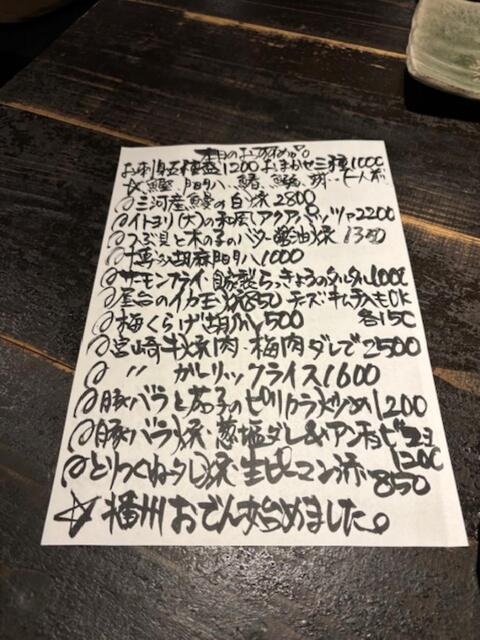 本日のおすすめ品
お刺身五種盛1200 おまかせ三種1000
一人前
三河産鰻の白焼2800
イトヨリ(大)の和風アクアパッツァ2200
つぶ貝と木の子のバター醤油焼 1300
胡麻 1000
サーモンフライ・自家製らっきょうのタルタル1000
屋台のイカ玉焼850 チーズ・キムチ入もOK
梅くらげ胡瓜500 各150
宮崎牛焼肉・梅肉ダレで2500
〃 ガーリックライス1600
豚バラと茄子のピリカラ炒め1200
豚バラ焼・葱塩ダレ&アンチョビ
1200
とりつくねうし焼・生ピーマン添850
☆播州おでん始めました。